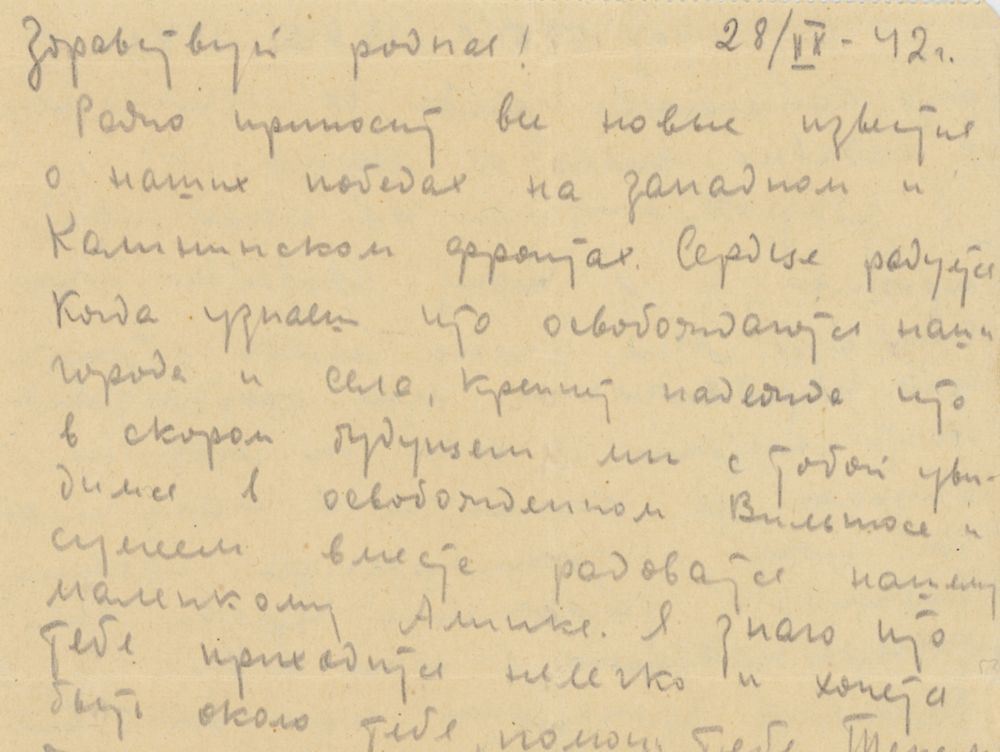 Здравствуй родная! 28/IX - 42 г.
Радио приносит все новые известия
о наших победах на западном и
Калининском фронтах. Сердце радуется
Когда узнаеш что освобождаются наши
города и села, крепнит надежда что
в скором будущем ми с тобой уви-
димся в освобожденном Вильнюсе и
сумеем вместе радоватся нашему
маленкому Алинке. Я знаю что
тебе приходится нелегко и хочется
быть около тебя, помочь тебе